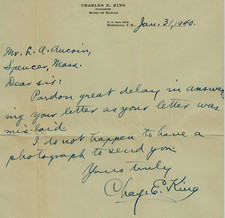 CHARLES E. KING
MUSIC OF HAWAII
Jan. 31, 1940.
Mr. R. A. Aucoin,
Spencer, Mass.
Dear sir:
Pardon great delay in answer-
ing your letter as your letter was
mislaid
I do not happen to have a
photograph to send you.
Yours truly
Chas. E. King